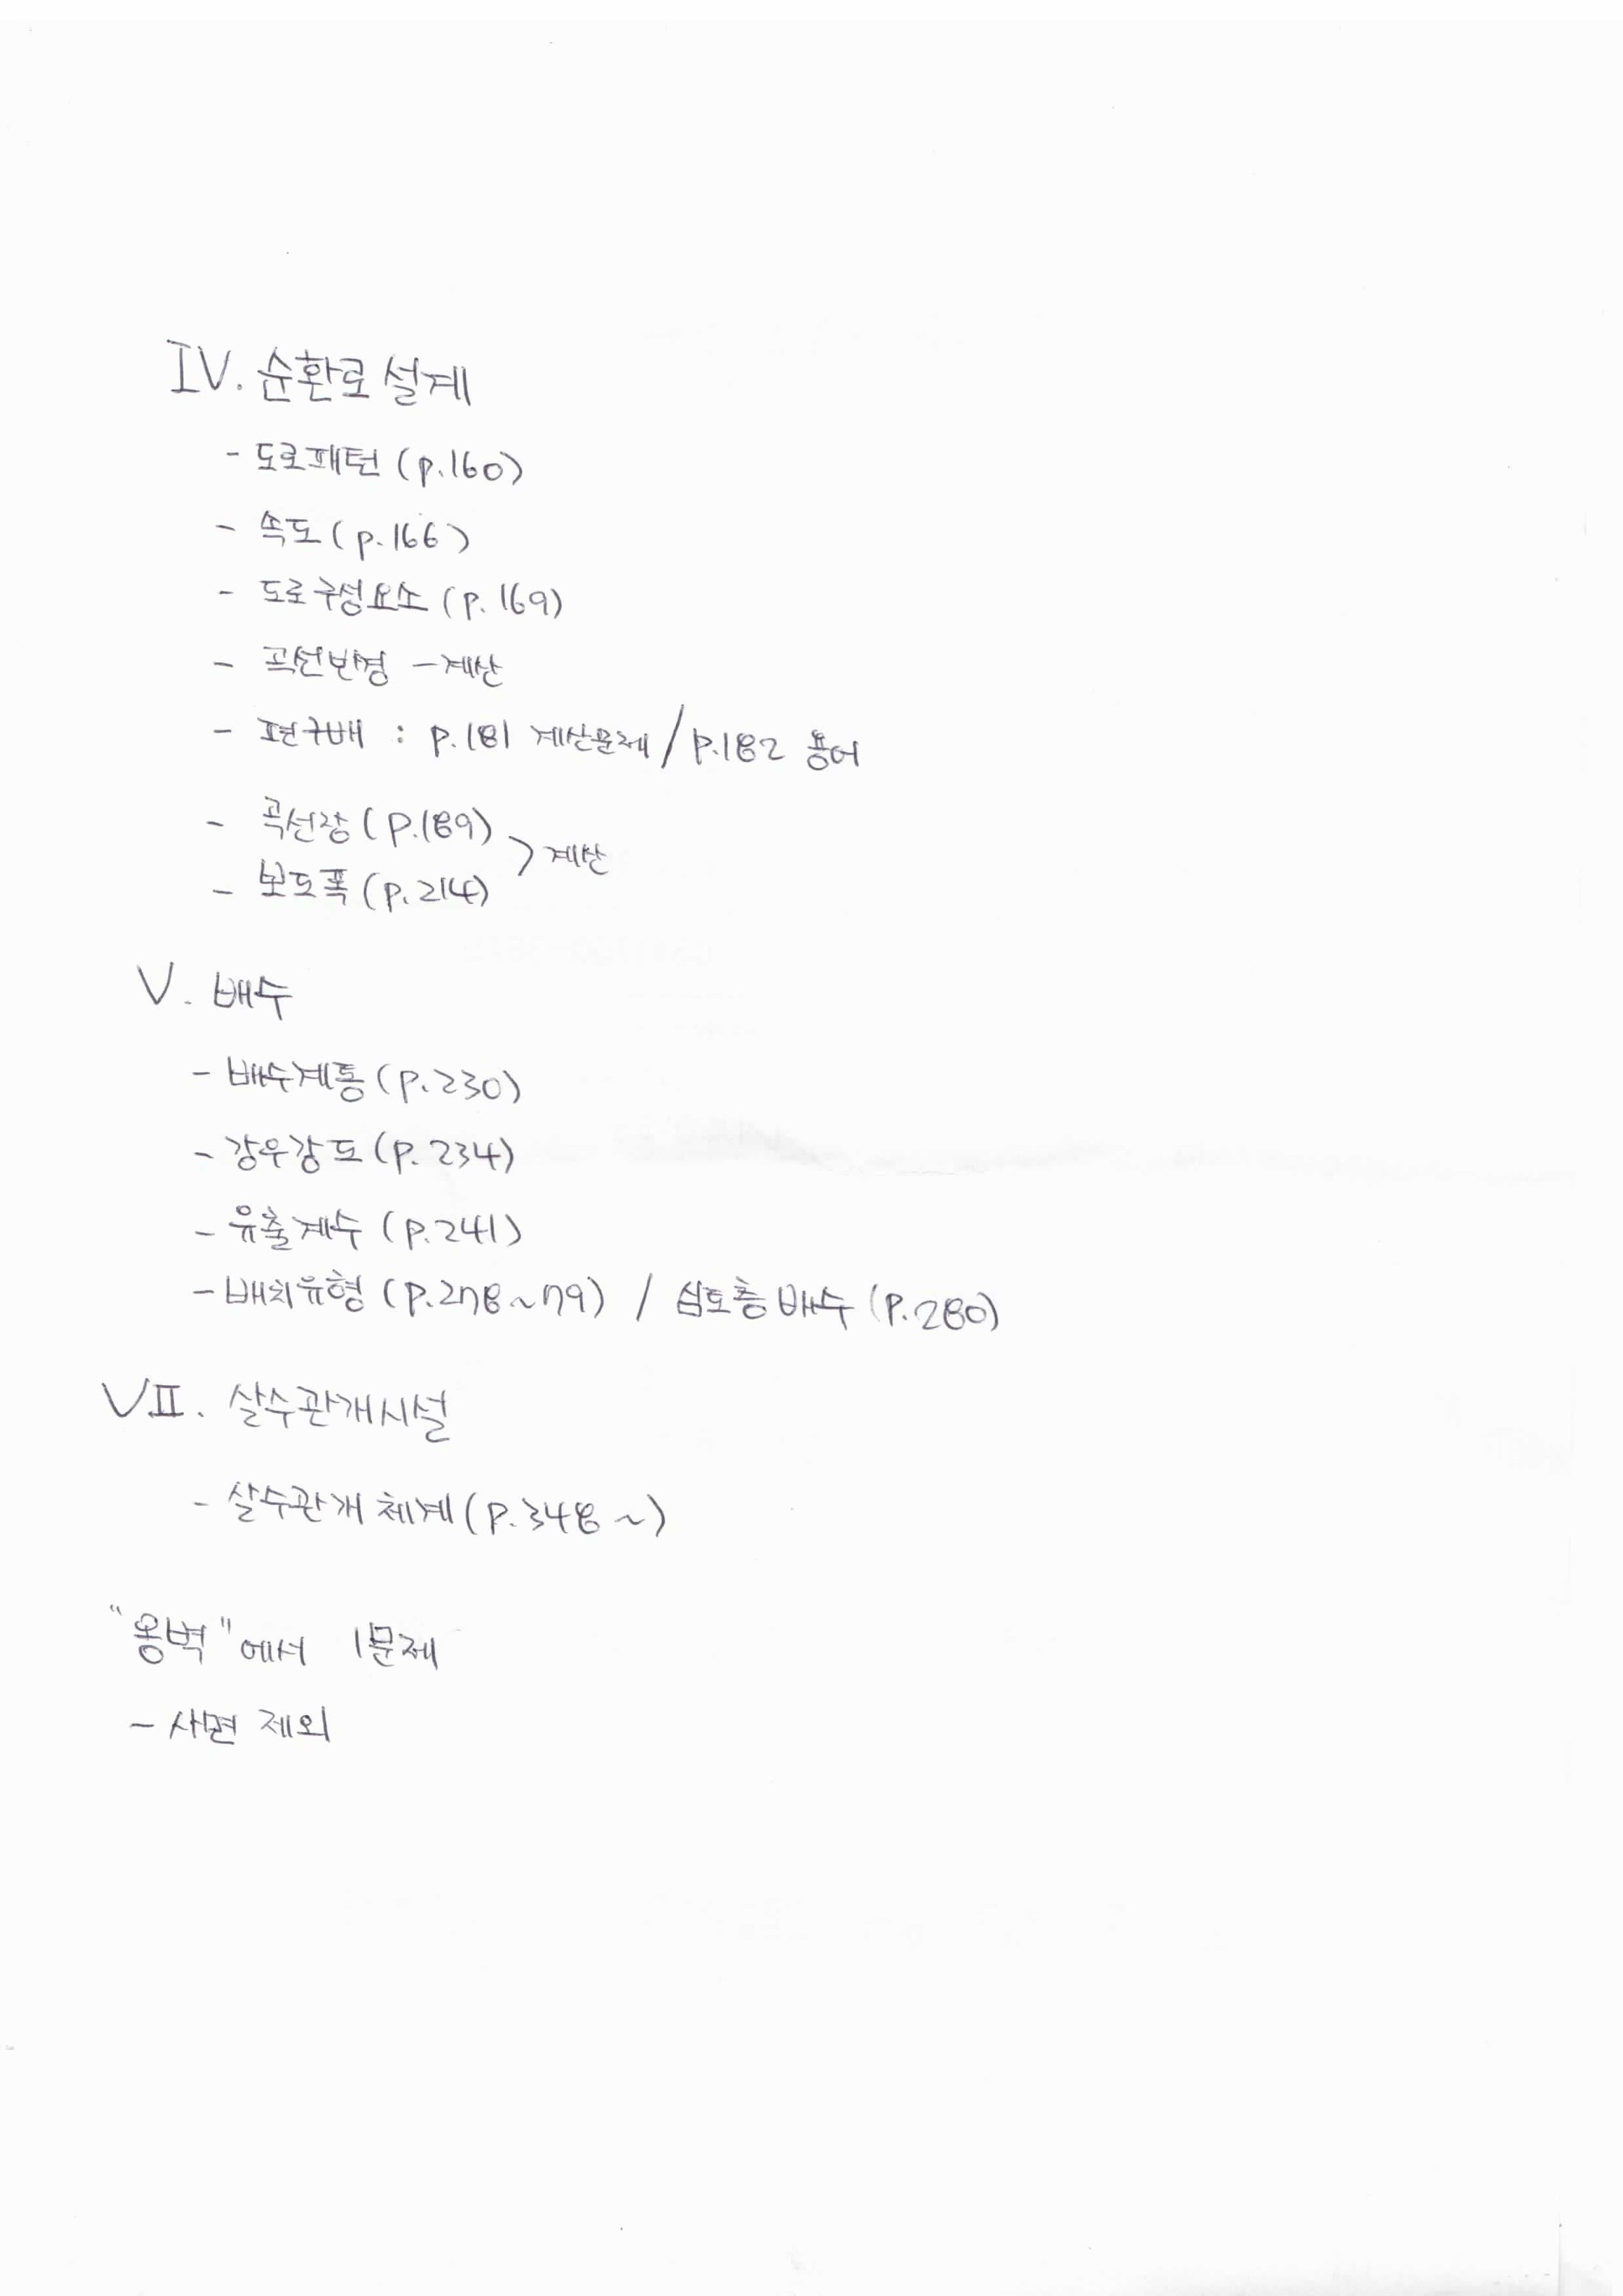 IV. 순환로 설계
- 도로패턴 (p.160)
- 속도 (p.166)
- 도로구성요소 (p.169)
- 곡선반경 - 계산
- 편구배 : p.181 계산문제 / p.182 용어
- 곡선장 (p.189)
> 계산
- 보도폭 (p.214)
V. 배수
- 배수계통 (p.230)
- 강우강도 (p.234)
- 유출계수 (p.241)
- 배치유형 (p.278~79) / 심토층 배수 (p.280)
VII. 살수관개시설
- 살수관개 체계 (p.348~)
"옹벽"에서 1문제
- 사면 제외